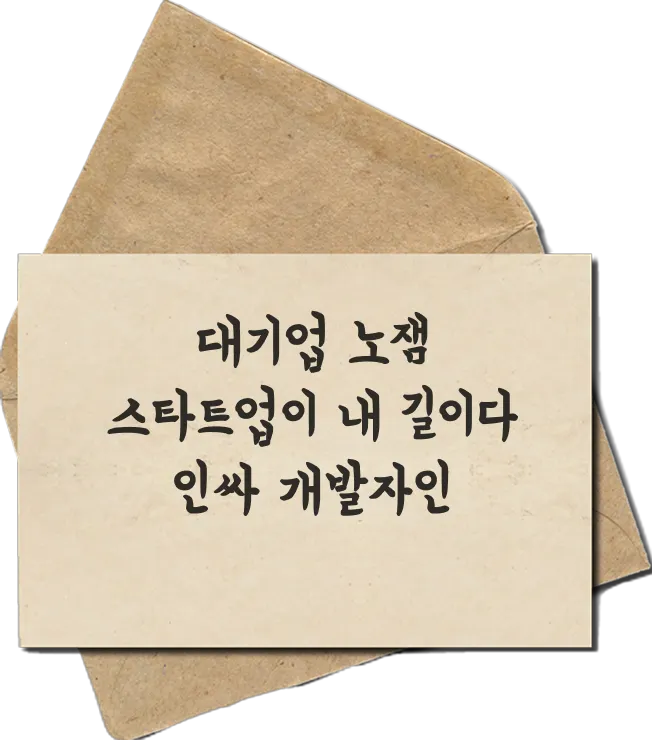 대기업 노잼
스타트업이 내 길이다
인싸 개발자인